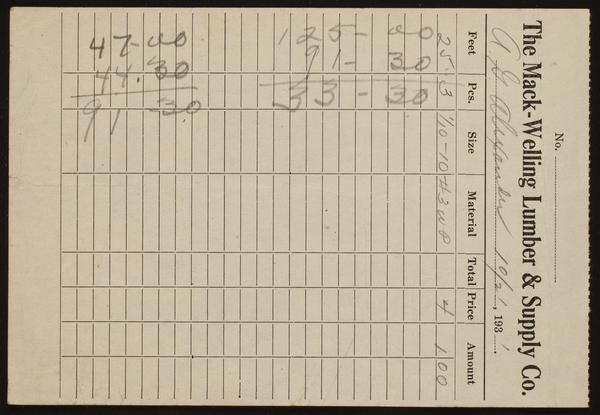 No.
The Mack-Welling Lumber & Supply Co.
A. G. Alexander 10/21, 1931.
Feet Pcs. Size Material Total Price Amount
25 3 1/10-10 #3 WP 4 1.00
125-00
91-30
33-30
47-00
44.30
91-30